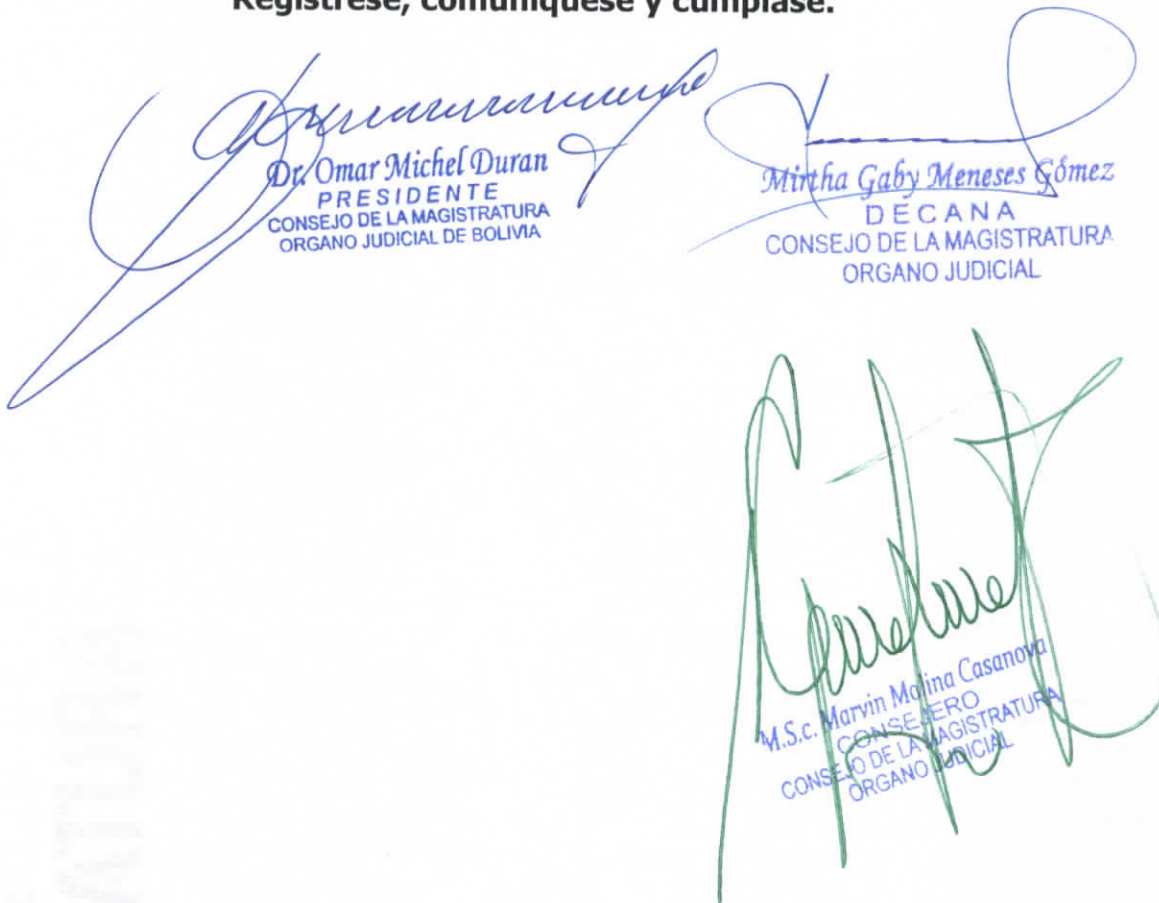 Regístrese, comuníquese y cúmplase.
Dr. Omar Michel Duran
PRESIDENTE
CONSEJO DE LA MAGISTRATURA
ORGANO JUDICIAL DE BOLIVIA
Mirtha Gaby Meneses Gómez
DECANA
CONSEJO DE LA MAGISTRATURA
ORGANO JUDICIAL
M.S.c. Marvin Molina Casanova
CONSEJERO
CONSEJO DE LA MAGISTRATURA
ORGANO JUDICIAL
ATURA